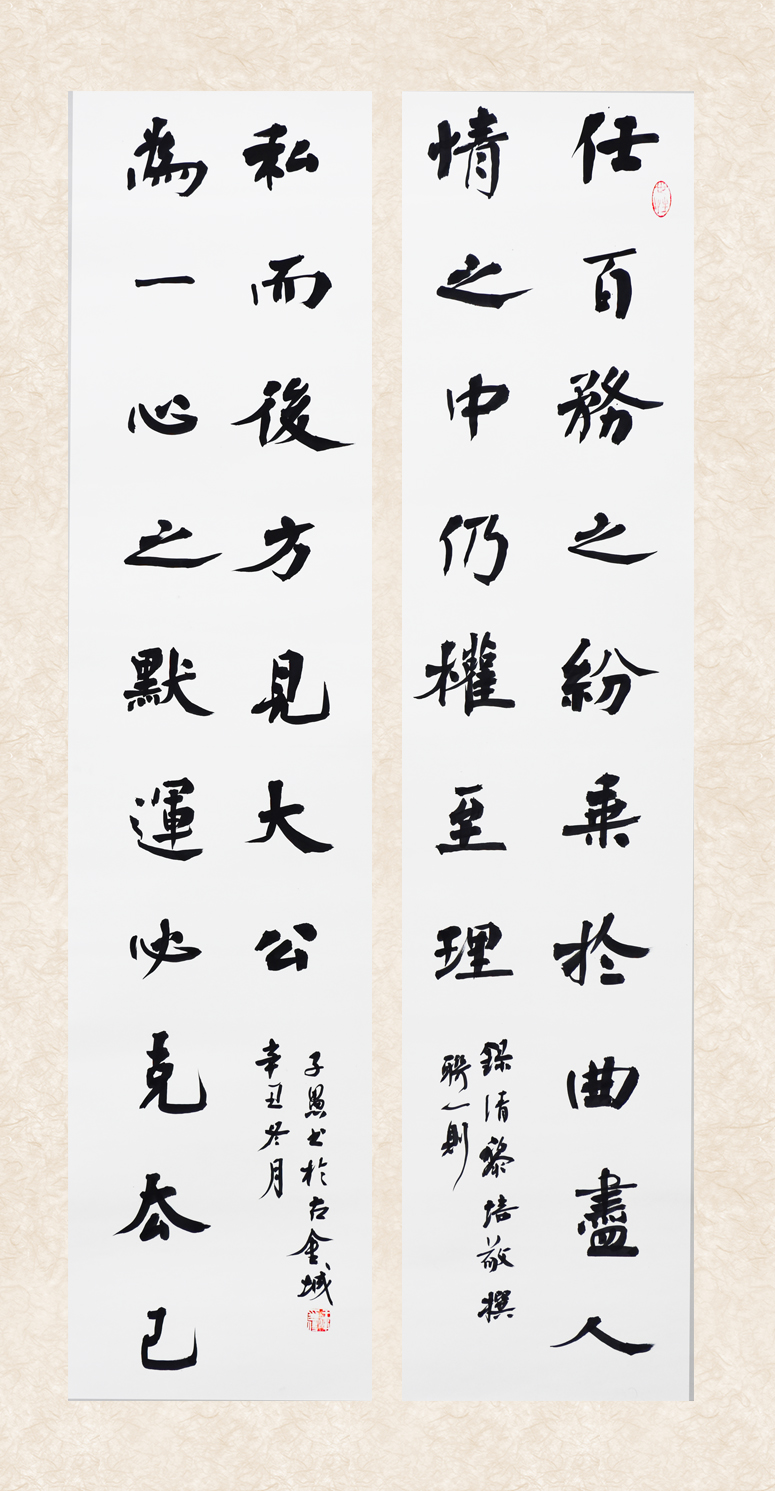 任百務之紛乗於曲盡人
情之中仍權至理
録清黎培敬撰
聯一則
為一心之默運必克厺己
私而後方見大公
子愚书於古金城
辛丑冬月